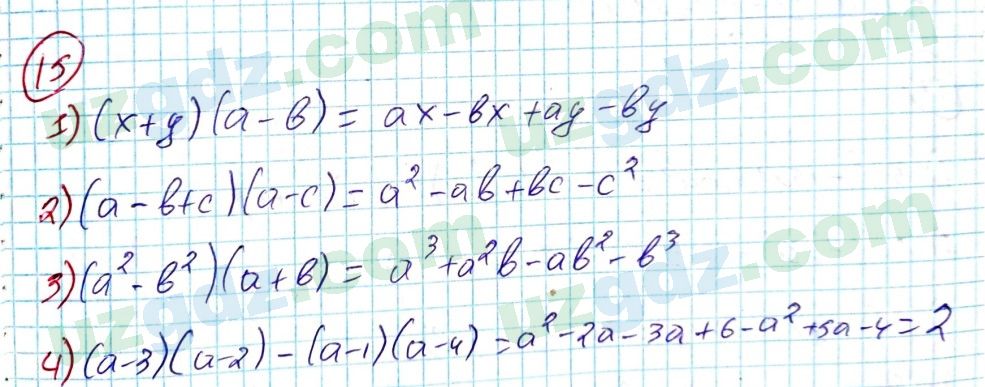 15
1) (x+y)(a-b) = ax-bx+ay-by
2) (a-b+c)(a-c) = a²-ab+bc-c²
3) (a²-b²)(a+b) = a³+a²b-ab²-b³
4) (a-3)(a-2)-(a-1)(a-4) = a²-2a-3a+6-a²+5a-4=2
uzgdz.com
uzgdz.com
uzgdz.com
uzgdz.com